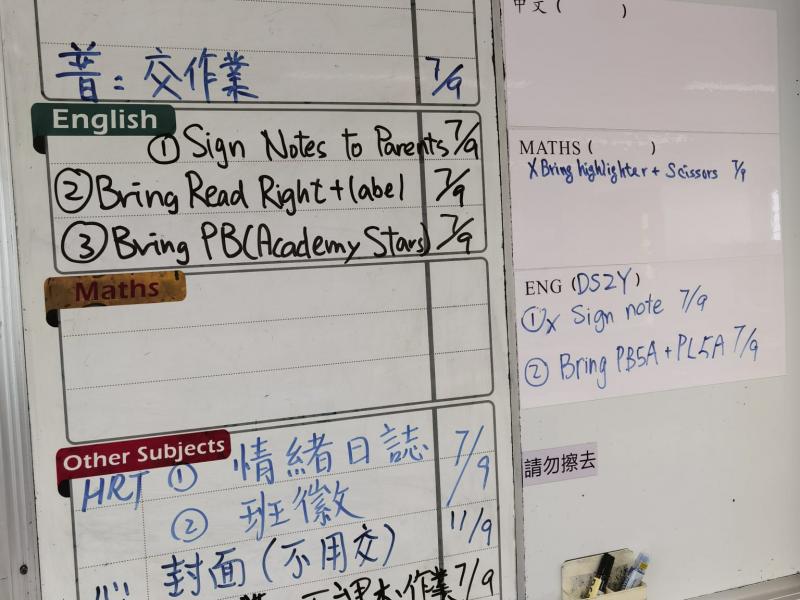 普：交作業 7/9
English
① Sign Notes to Parents 7/9
② Bring Read Right + label 7/9
③ Bring PB(Academy Stars) 7/9
Maths
Other Subjects
HRT ① 情緒日誌 7/9
② 班徽 11/9
封面(不用交)
作業 7/9
中文 ( )
MATHS ( )
X Bring highlighter + Scissors 7/9
ENG (DS2Y)
①X Sign note 7/9
② Bring PB5A + PL5A 7/9
請勿擦去